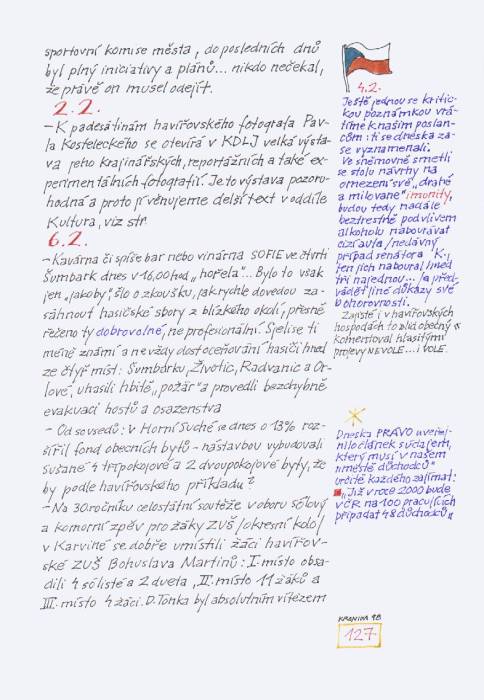 sportovní komise města, do posledních dnů
byl plný iniciativy a plánů... nikdo nečekal,
že právě on musel odejít.
2.2.
– K padesátinám havířovského fotografa Pav-
la Kosteleckého se otevírá v KDLJ velká výsta-
va jeho krajinářských, reportážních a také ex-
perimentálních fotografií. Je to výstava pozoru-
hodná a proto jí věnujeme delší text v oddíle
Kultura, viz str.
6.2.
– Kavárna či spíše bar nebo vinárna SOFIE ve čtvrti
Šumbark dnes v 16,00 hod „hořela“... Bylo to však
jen „jakoby“, šlo o zkoušku, jak rychle dovedou za-
sáhnout hasičské sbory z blízkého okolí, přesně
řečeno ty dobrovolné, ne profesionální. Sjeli se ti
méně známí a ne vždy dost oceňování hasiči hned
ze čtyř míst: Šumbarku, Životic, Radvanic a Or-
lové, uhasili hbitě „požár“ a provedli bezchybně
evakuaci hostů a osazenstva
– Od sousedů: v Horní Suché se dnes o 13% roz-
šířil fond obecních bytů – nástavbou vybudovali
sušané 4 třípokojové a 2 dvoupokojové byty, že
by podle havířovského příkladu?
– Na 30. ročníku celostátní soutěže v oboru sólový
a komorní zpěv pro žáky ZUŠ /okresní kolo/
v Karviné se dobře umístili žáci havířov-
ské ZUŠ Bohuslava Martinů: I. místo obsa-
dili 4 sólisté a 2 dueta, II. místo 11 žáků a
III. místo 4 žáci. D. Tonka byl absolutním vítězem
4.2.
Ještě jednou se kritic-
kou poznámkou vrá-
tíme k našim poslan-
cům: ti se dneska za-
se vyznamenali.
Ve sněmovně smetli
se stolu návrhy na
omezení své „drahé
a milované“ imunity,
budou tedy nadále
beztrestně pod vlivem
alkoholu nabourávat
cizí auta /nedávný
případ senátora K.,
ten jich naboural hned
tři najednou.../a před-
vádět jiné důkazy své
D
Zajisté i v havířovských
hospodách to lid obecný
komentoval hlasitými
projevy NEVOLE...i VOLE.
Dneska PRÁVO uveřej-
nilo článek s údajem,
který musí v našem
„městě důchodců“
určitě každého zajímat:
„Již v roce 2000 bude
v ČR na 100 pracujících
připadat 48 důchodců“
KRONIKA 98
127